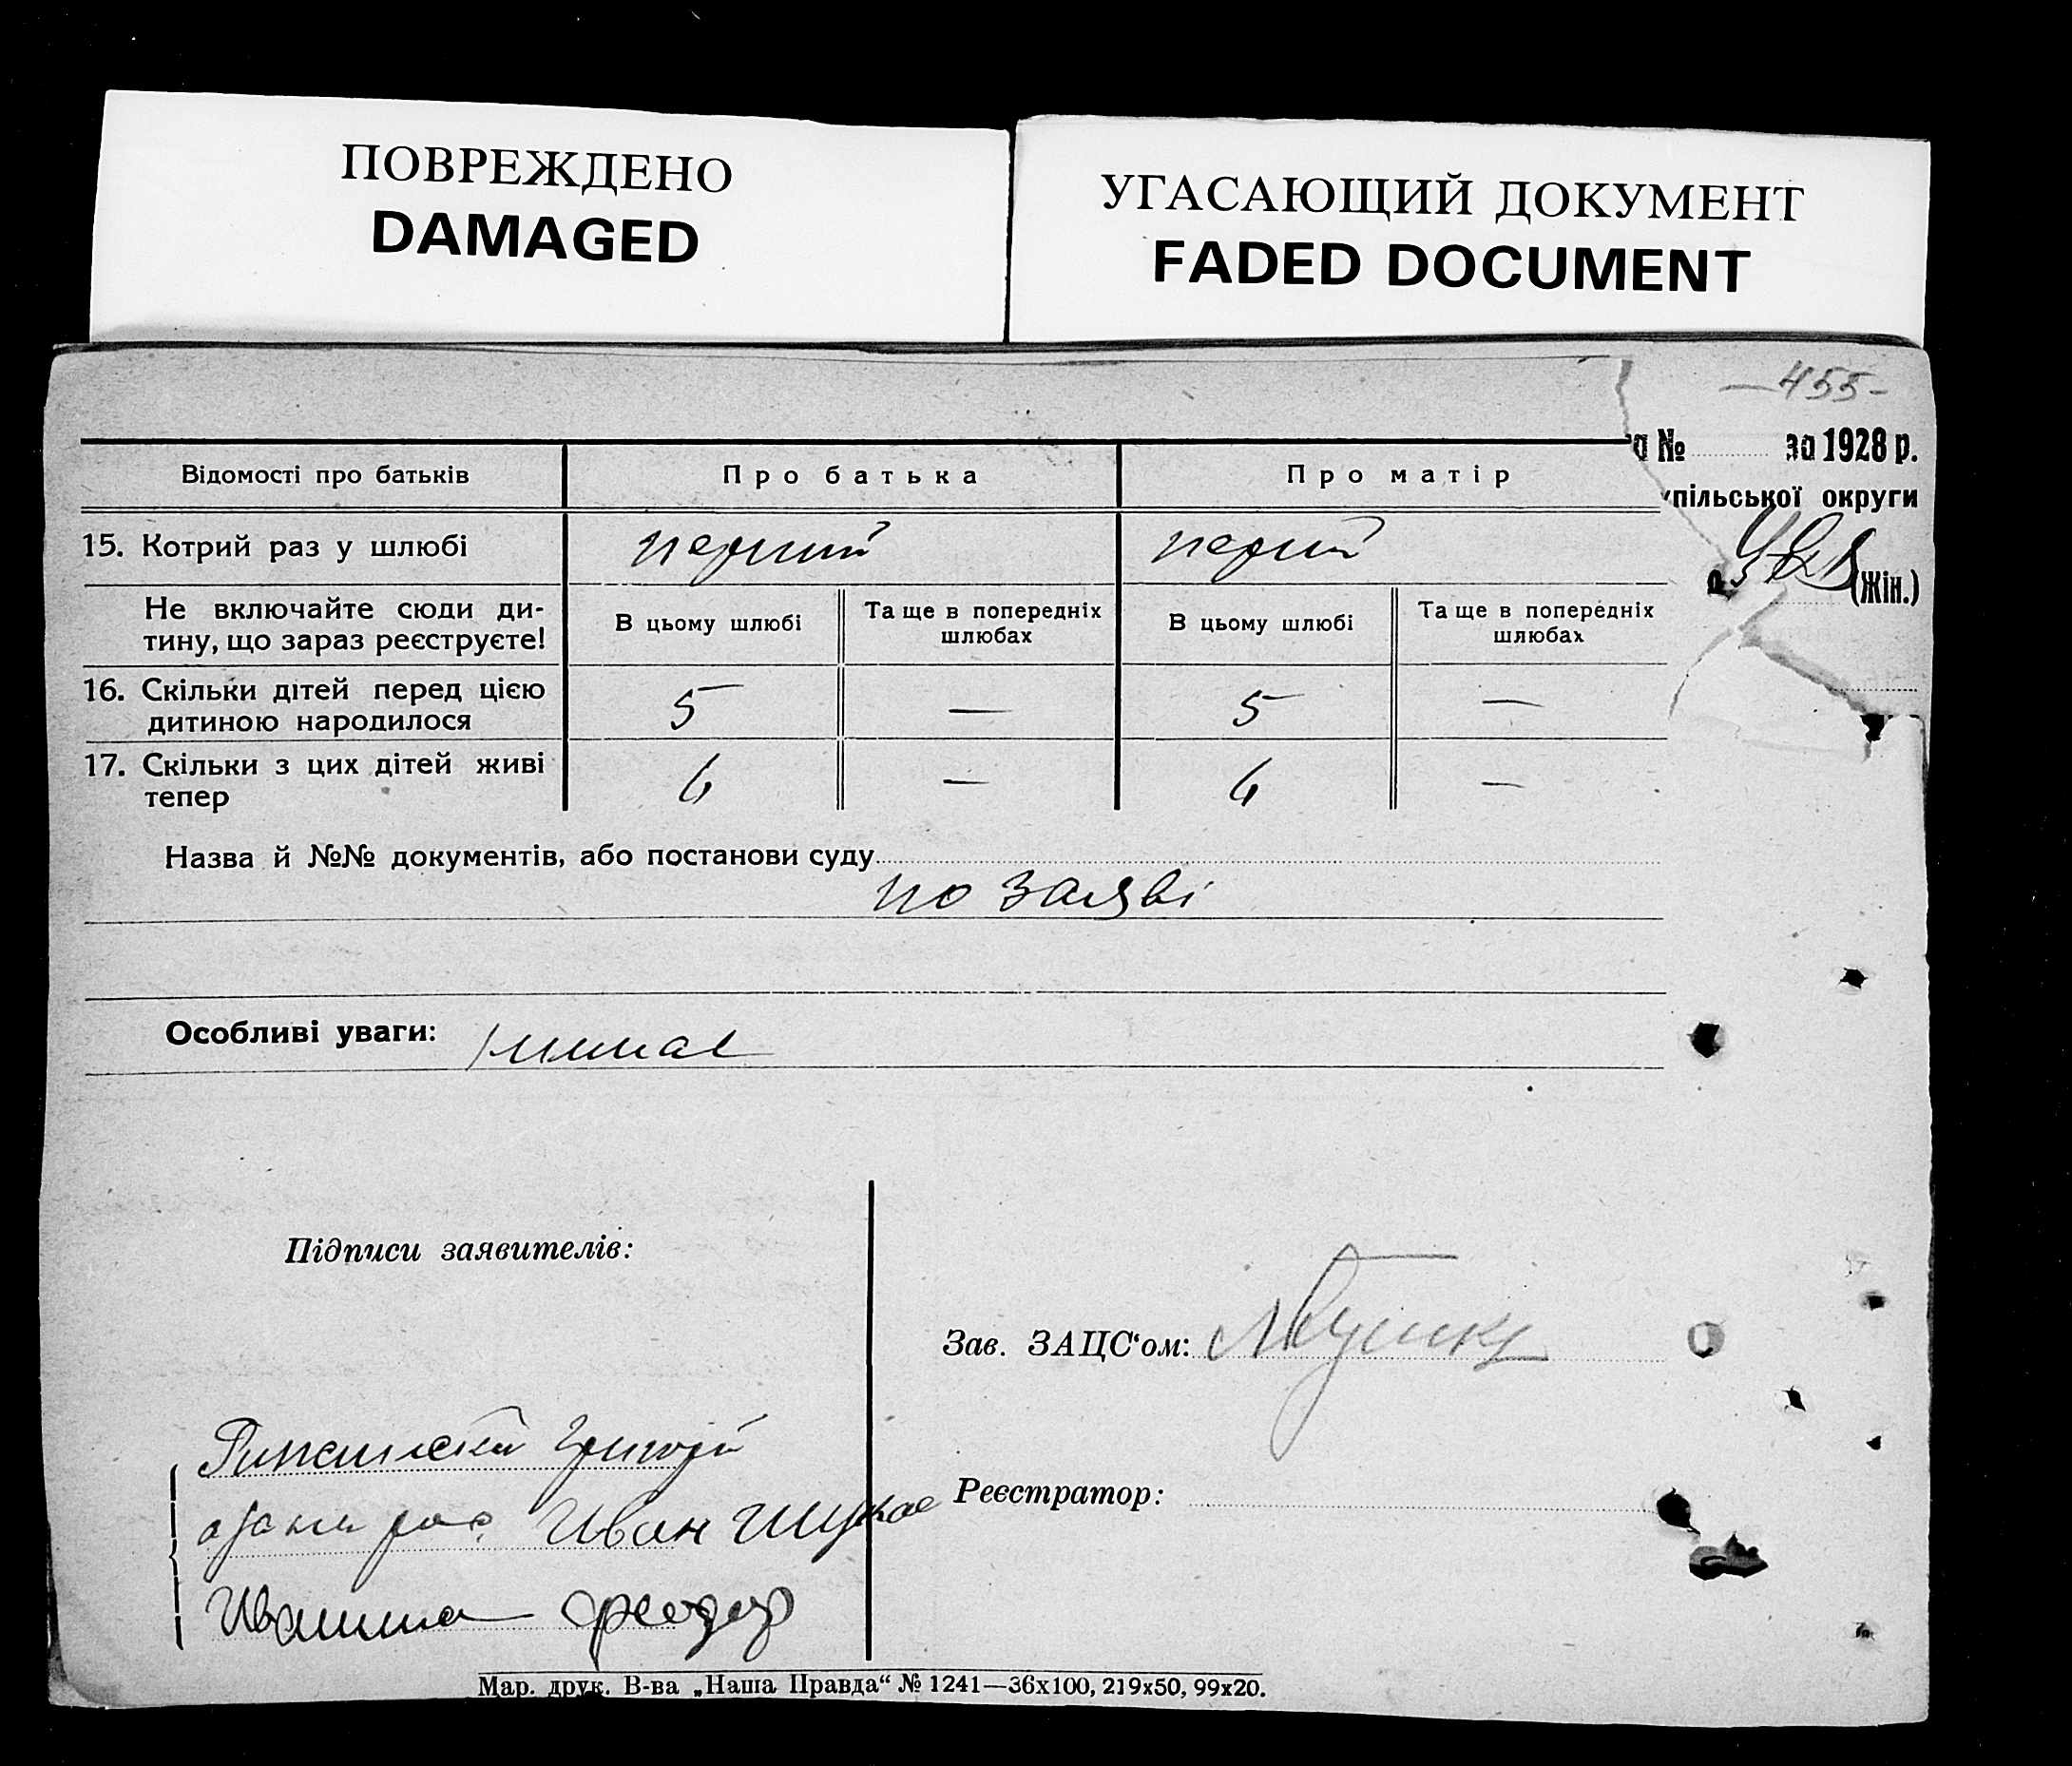 ПОВРЕЖДЕНО
DAMAGED
УГАСАЮЩИЙ ДОКУМЕНТ
FADED DOCUMENT
—455-
№ за 1928 р.
пільської округи
(Жін.)
Відомості про батьків Про батька Про матір
15. Котрий раз у шлюбі перший
Не включайте сюди ди-
тину, що зараз реєструєте!
В цьому шлюбі Та ще в попередніх шлюбах В цьому шлюбі Та ще в попередніх шлюбах
16. Скільки дітей перед цією
дитиною народилося 5 — 5 —
17. Скільки з цих дітей живі
тепер — —
Назва й №№ документів, або постанови суду
по заяві
Особливі уваги: немає
Підписи заявителів:
Зав. ЗАЦС'ом:
Реєстратор:
Григорій
Иван
Ивашина Феодор
Мар. друк. В-ва „Наша Правда“ № 1241—36х100, 219х50, 99х20.